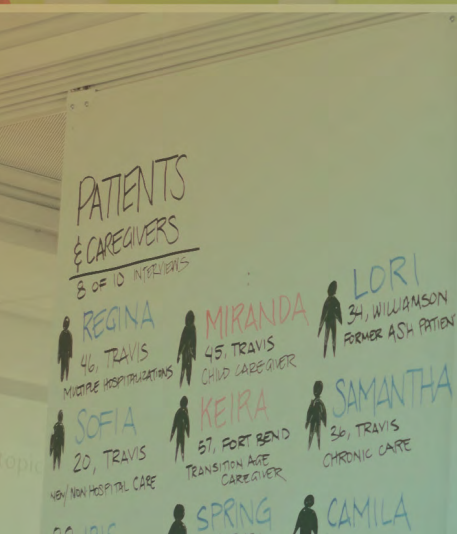 PATIENTS
& CAREGIVERS
8 OF 10 INTERVIEWS
REGINA
46, TRAVIS
MULTIPLE HOSPITALIZATIONS
MIRANDA
45, TRAVIS
CHILD CAREGIVER
LORI
34, WILLIAMSON
FORMER ASH PATIEN
SOFIA
20, TRAVIS
NEW/NON HOSPITAL CARE
KEIRA
57, FORT BEND
TRANSITION AGE
CAREGIVER
SAMANTHA
36, TRAVIS
CHRONIC CARE
SPRING
CAMILA